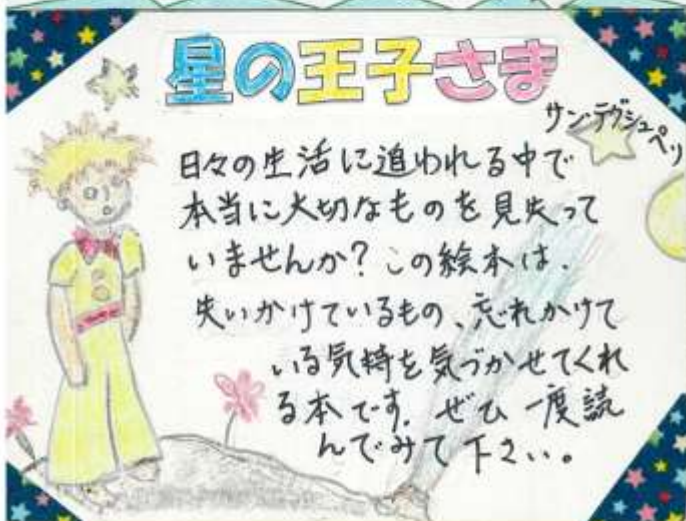 星の王子さま
サン・テグジュペリ
日々の生活に追われる中で
本当に大切なものを見失って
いませんか?この絵本は、
失いかけているもの、忘れかけて
いる気持を気づかせてくれ
る本です。ぜひ一度読
んでみて下さい。